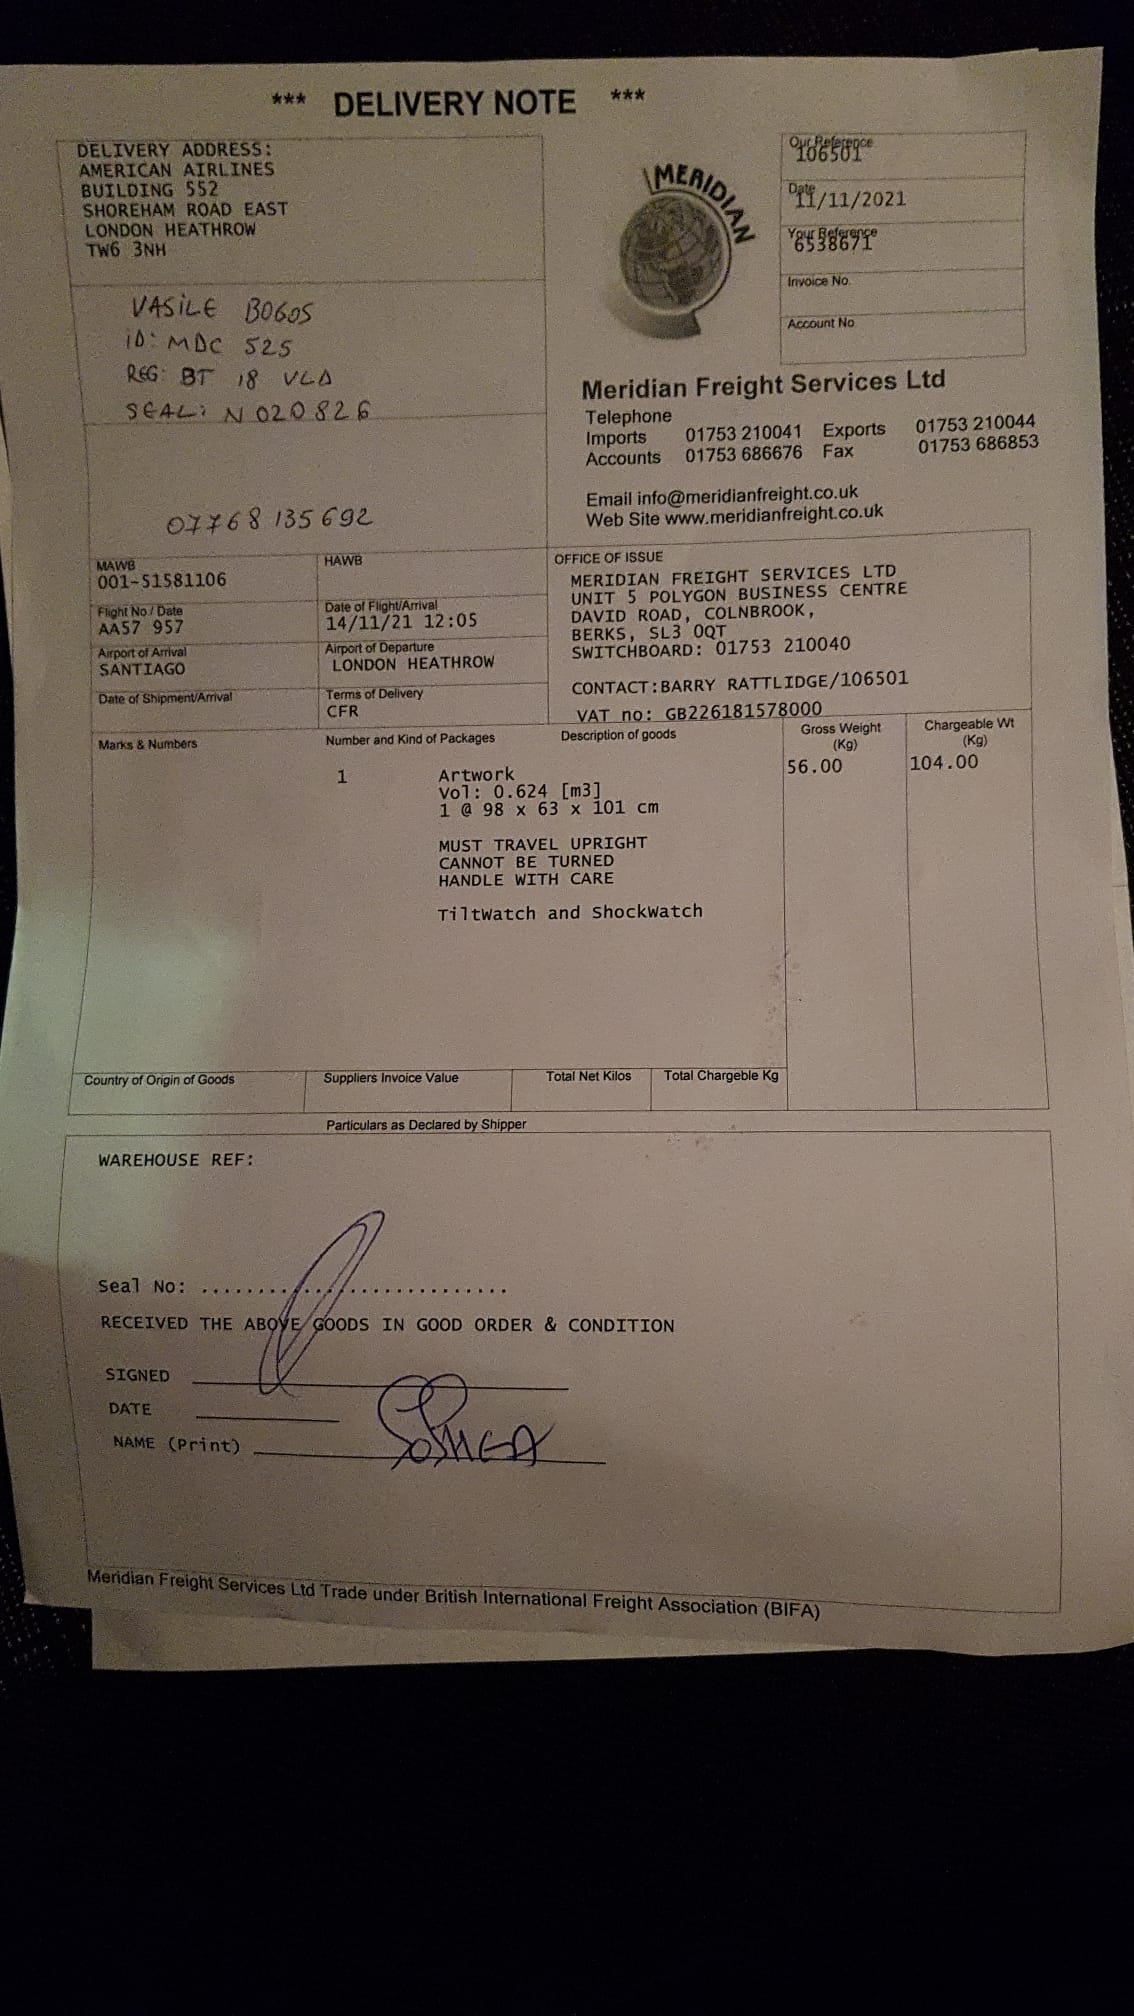 *** DELIVERY NOTE ***
DELIVERY ADDRESS:
AMERICAN AIRLINES
BUILDING 552
SHOREHAM ROAD EAST
LONDON HEATHROW
TW6 3NH
VASILE BOGOS
ID: MDC 525
REG: BT 18 VLD
SEAL: N 020826
07768 135 692
MERIDIAN
Our Reference
106501
Date
11/11/2021
Your Reference
6538671
Invoice No.
Account No
Meridian Freight Services Ltd
Telephone
Imports 01753 210041 Exports 01753 210044
Accounts 01753 686676 Fax 01753 686853
Email info@meridianfreight.co.uk
Web Site www.meridianfreight.co.uk
MAWB
001-51581106
HAWB
Flight No / Date
AA57 957
Date of Flight/Arrival
14/11/21 12:05
Airport of Arrival
SANTIAGO
Airport of Departure
LONDON HEATHROW
Date of Shipment/Arrival
Terms of Delivery
CFR
OFFICE OF ISSUE
MERIDIAN FREIGHT SERVICES LTD
UNIT 5 POLYGON BUSINESS CENTRE
DAVID ROAD, COLNBROOK,
BERKS, SL3 0QT
SWITCHBOARD: 01753 210040
CONTACT:BARRY RATTLIDGE/106501
VAT no: GB226181578000
Marks & Numbers
Number and Kind of Packages
Description of goods
Gross Weight
(Kg)
Chargeable Wt
(Kg)
1 Artwork 56.00 104.00
Vol: 0.624 [m3]
1 @ 98 x 63 x 101 cm
MUST TRAVEL UPRIGHT
CANNOT BE TURNED
HANDLE WITH CARE
TiltWatch and ShockWatch
Country of Origin of Goods
Suppliers Invoice Value
Total Net Kilos
Total Chargeble Kg
Particulars as Declared by Shipper
WAREHOUSE REF:
Seal No: ...................................
RECEIVED THE ABOVE GOODS IN GOOD ORDER & CONDITION
SIGNED
DATE
NAME (Print)
Meridian Freight Services Ltd Trade under British International Freight Association (BIFA)